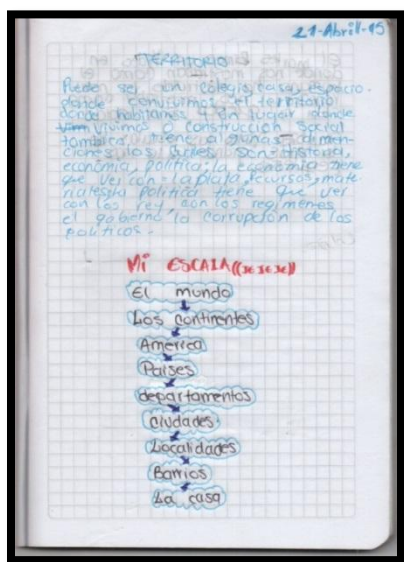 21-Abril-15
TERRITORIO
Puede ser un colegio, casa, espacio.
donde convivimos el territorio
donde habitamos y un lugar donde
vivimos o construcción social
tambien tiene algunas dimen-
ciones los cuales son = historia,
economía, política, la economía tiene
que ver con la plata, recursos, mate
riales, la politica tiene que ver
con los rey con los regimenes
el gobierno la corrupción de los
politicos.
Mi ESCALA ((JeJeJe))
El mundo
Los continentes
America
Paises
departamentos
ciudades
Localidades
Barrios
La casa